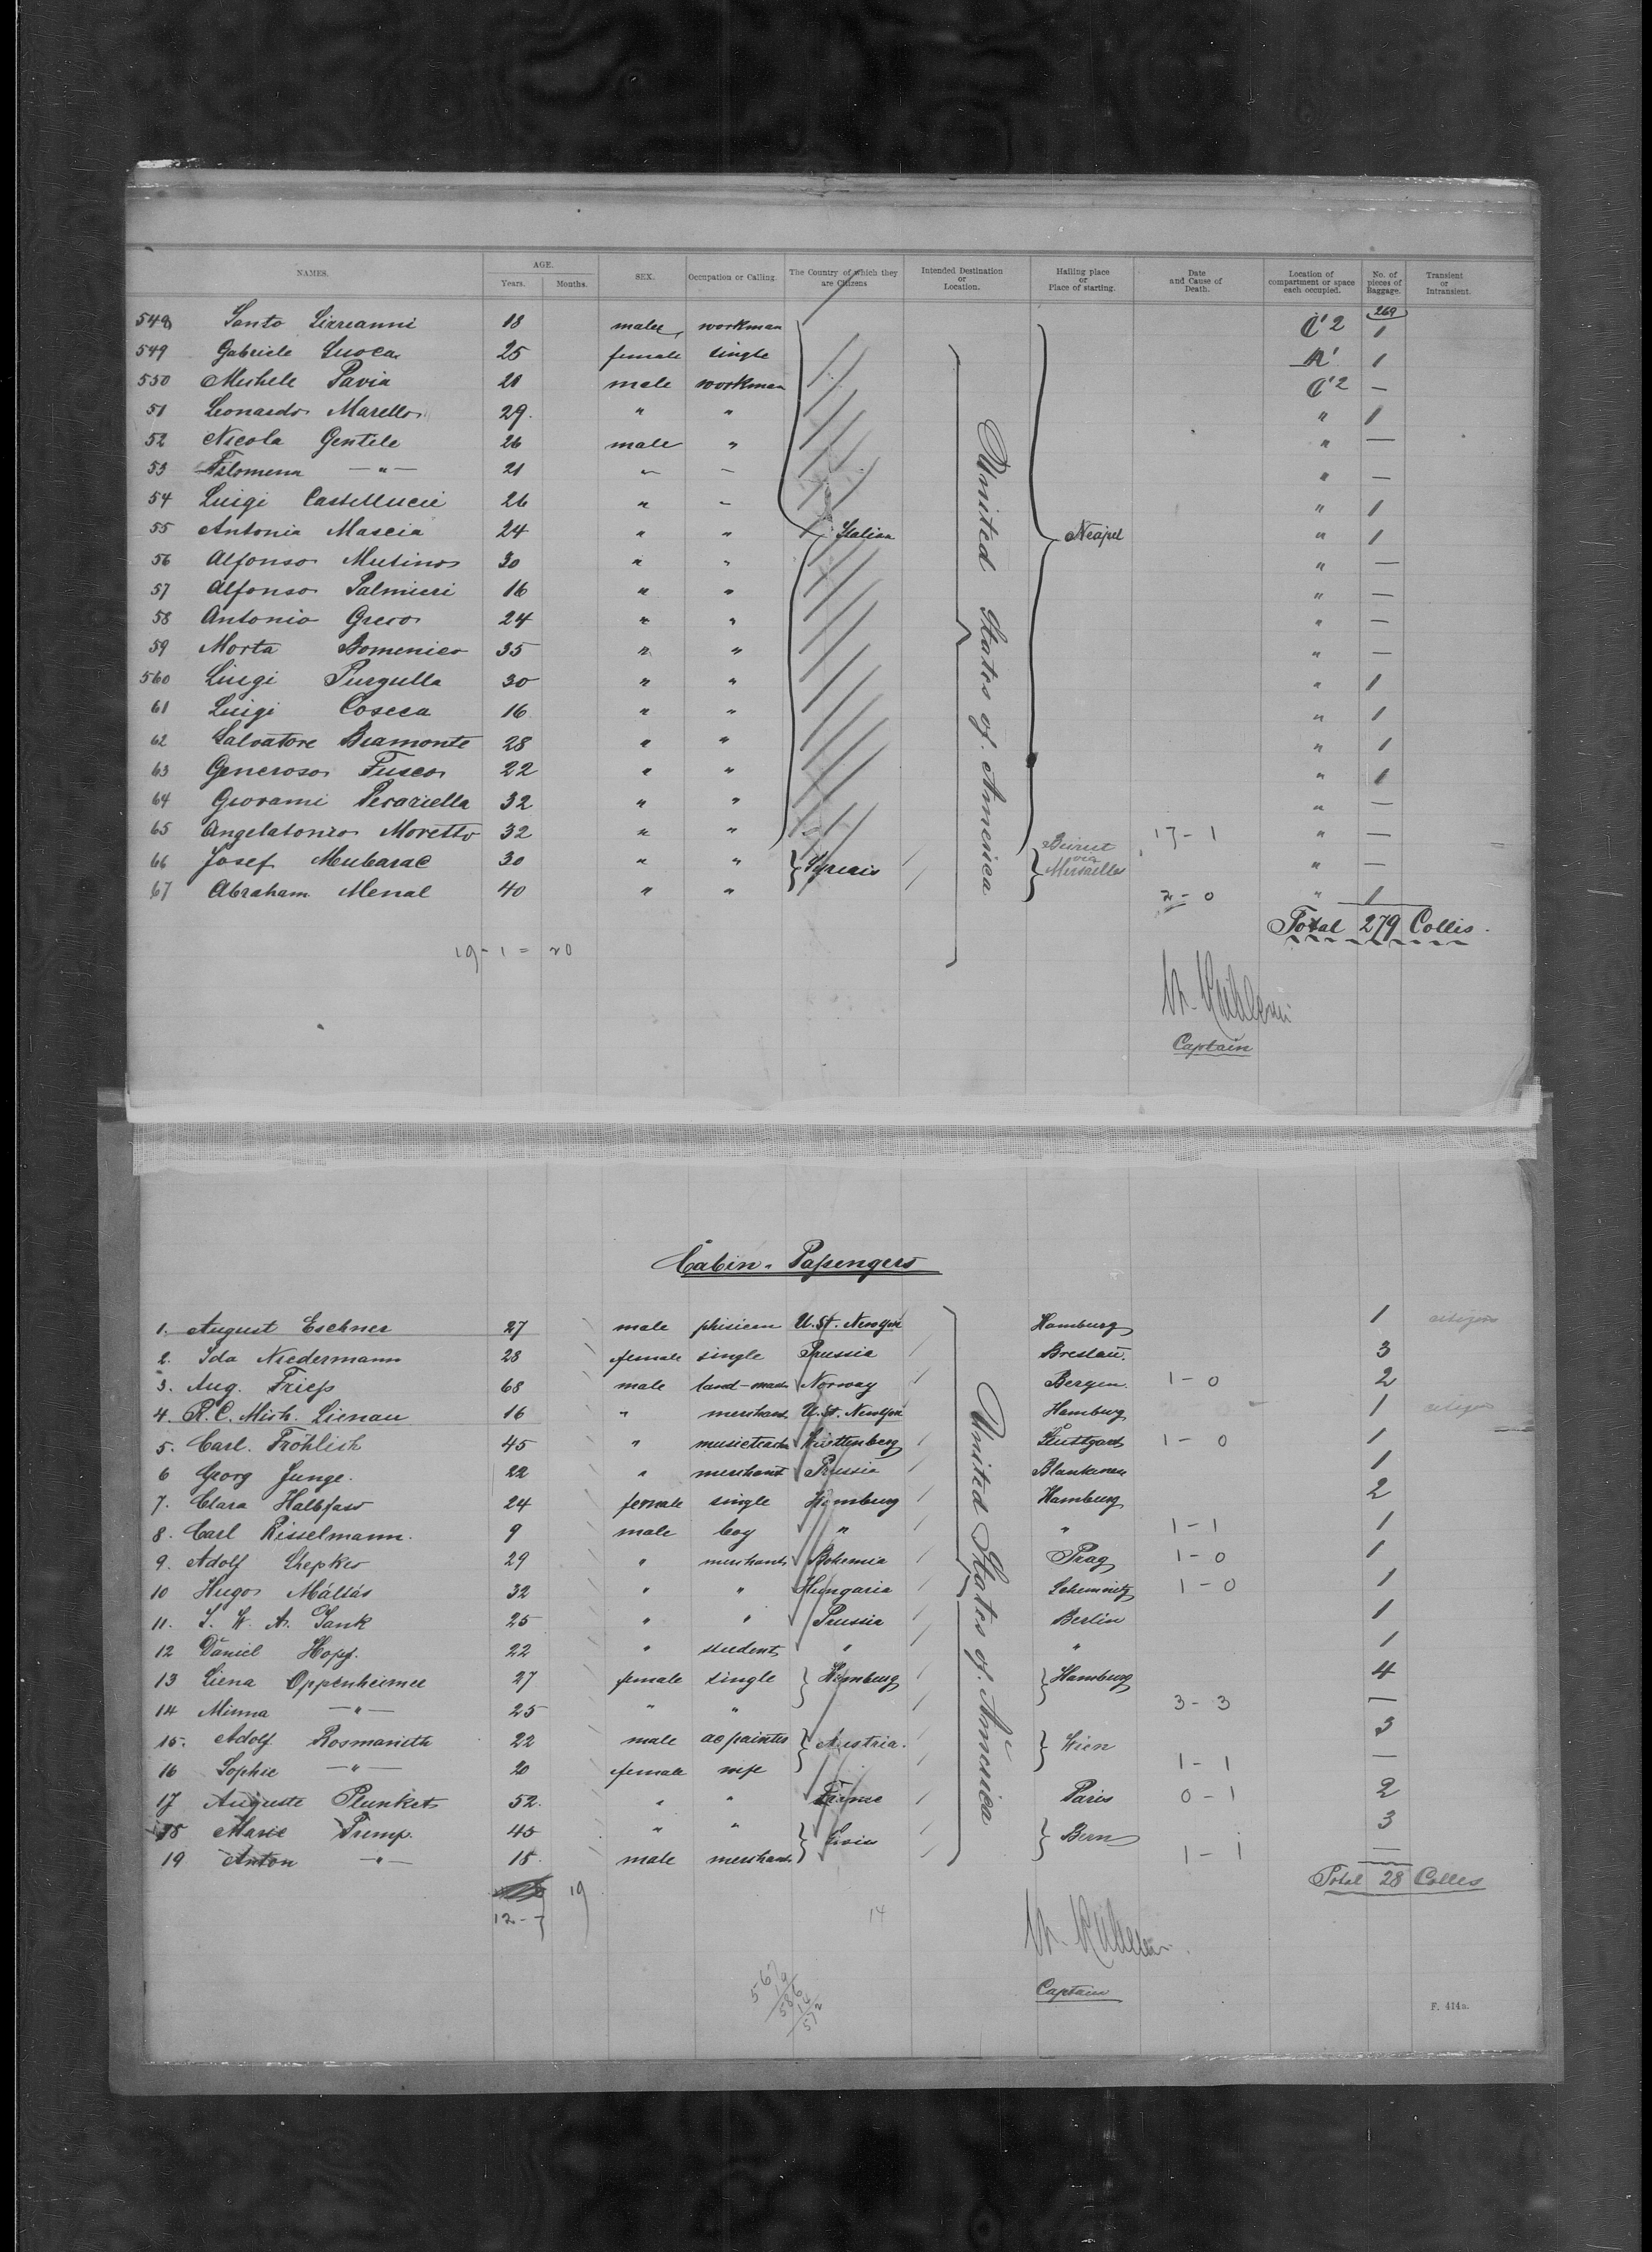 NAMES. AGE. Years. Months. SEX. Occupation or Calling. The Country of which they are Citizens Intended Destination or Location. Hailing place or Place of starting. Date and Cause of Death. Location of compartment or space each occupied. No. of pieces of Baggage. Transient or Intransient.
269
548 Santo 18 male workman C'2 1
549 Gabriele 25 female single A' 1
550 Michele Pavia 21 male workman C'2 —
51 Leonardo Marello 29. " " " 1
52 Nicola Gentile 26 male " " —
53 Filomena —"— 21 " — " —
54 Luigi Castellucci 26 " — " 1
55 Antonia Mascia 24 " " Italien Neapel " 1
56 Alfonso Mutino 30 " " " —
57 Alfonso Palmieri 16 " " " —
58 Antonio Greco 24 " " " —
59 Morta Domenico 35 " " " —
560 Luigi Purgulla 30 " " " 1
61 Luigi Coscca 16 " " " 1
62 Salvatore Bramonte 28 " " " 1
63 Generoso Fusco 22 " " " 1
64 Giovanni 32 " " " —
65 Angelatonio Moretto 32 " " 17-1 " —
66 Josef Mubarac 30 " " Syriais Beirut via Marseilles " —
67 Abraham Menal 40 " " 2-0 " 1
United States of America
Total 279 Collis.
19-1 = 20
Captain
Cabin-Passengers
1. August Eschner 27 male phisicen U. St. Newyork Hamburg 1 citizen
2. Ida Niedermann 28 female single Prussia Breslau. 3
3. Aug. Friess 68 male land-man Norway Bergen. 1-0 2
4. R. C. Mich. Lienau 16 " merchant U. St. Newyork Hamburg 1 citizen
5. Carl Fröhlich 45 " musicteacher Württenberg Stuttgart 1-0 1
6 Georg Junge. 22 " merchant Prussia Blankenese 1
7. Clara Halbfass 24 female single Hamburg Hamburg 2
8. Carl Risselmann. 9 male boy " " 1-1 1
9. Adolf 29 " merchant Bohemia Prag 1-0 1
10 Hugo Mátlás 32 " " Hungaria Schemnitz 1-0 1
11. S. W. A. Jank 25 " " Prussia Berlin 1
12 Daniel Hopf. 22 " student " " 1
13 Liena Oppenheimer 27 female single Hamburg Hamburg 4
14 Minna —"— 25 " " 3-3 —
15. Adolf Rosmanith 22 male painter Austria. Wien 3
16 Sophie —"— 20 female wife 1-1 —
17 Auguste Plunket 52. " " France Paris 0-1 2
18 Marie Trump. 45 " " Bern 3
19 Anton —"— 18 male merchant 1-1 —
United States of America
Total 28 Colles
19
12-7
14
567
19
586
14
572
Captain
F. 414a.